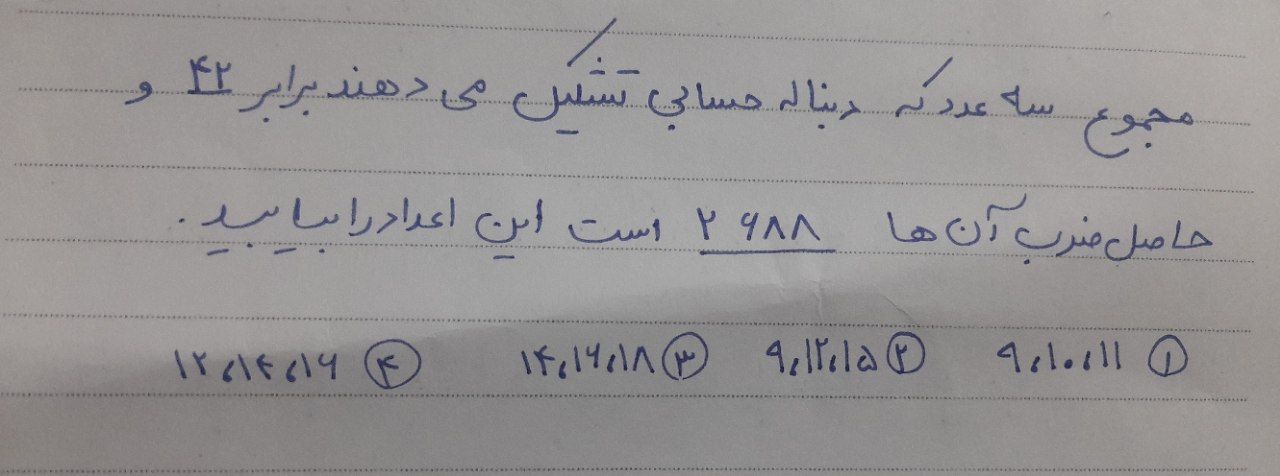 مجموع سه عدد که دنباله حسابی تشکیل می دهند برابر ۴۲ و
حاصل ضرب آن ها ۲۶۸۸ است این اعداد را بیابید.
① ۹،۱۰،۱۱ ② ۹،۱۲،۱۵ ③ ۱۴،۱۶،۱۸ ④ ۱۲،۱۴،۱۶